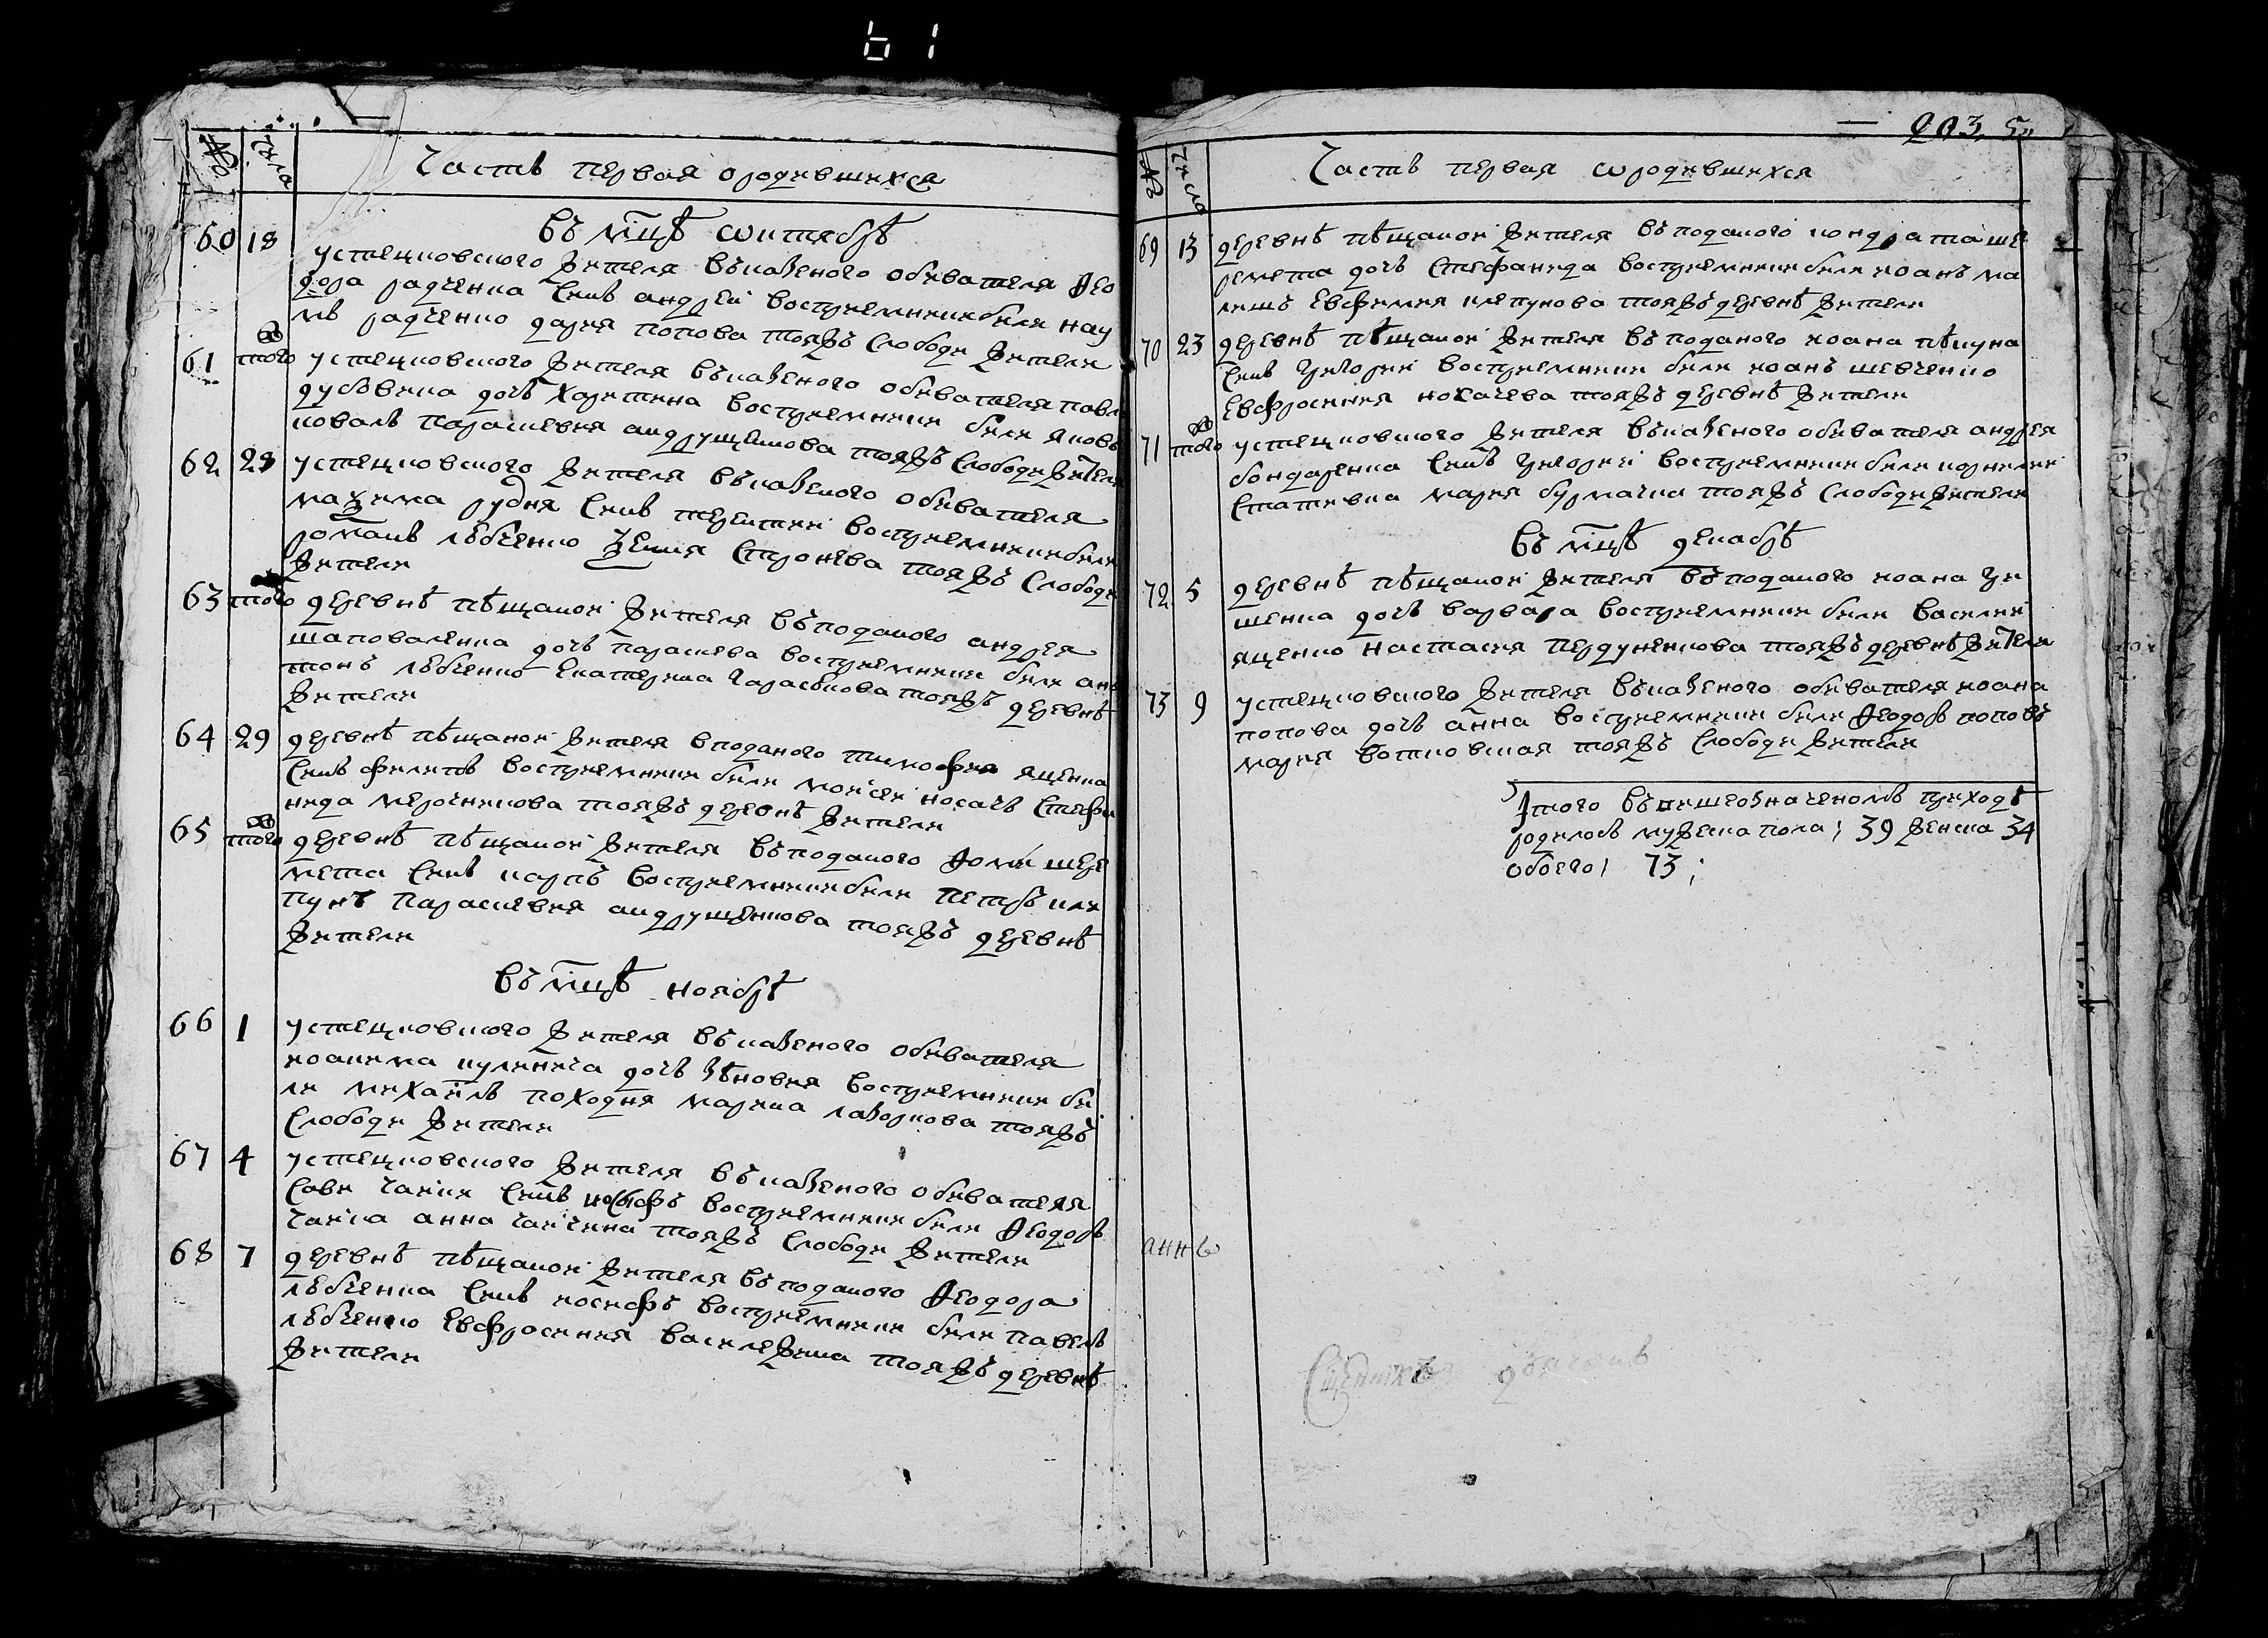 61
№ числа Часть первая о родившихся
въ мцѣ октябрѣ
60 18 устецковского жителя въказеного обивателя Ѳео
дора радченка синъ андрей восприемники били нау
мъ радченко дария попова тояжъ слободи жители
61 того устецковского жителя въказеного обивателя павл
дубовика дочъ харитина восприемники били яковъ
коваль параскевия андрущенкова тояжъ слободи жители
62 28 устецковского жителя въказеного обивателя
маѯима рудня синъ терентий восприемники били
романъ лѣбченко ѯения строкева тояжъ слободи
жители
63 того деревнѣ пѣщаной жителя въподаного андрея
шаповаленка дочъ параскева восприемники били ан
тонъ лѣбченко екатерина тояжъ деревнѣ
жители
64 29 деревнѣ пѣщаной жителя вподаного тимофея яценка
синъ филипъ восприемники били моисей носачъ стефа
нида мерочникова тояжъ деревнѣ жители
65 того деревнѣ пѣщаной жителя въподаного Ѳоми шере
мета синъ карпъ восприемники били петръ кли
пунъ параскевия андрущенкова тояжъ деревнѣ
жители
въ мцѣ ноябрѣ
66 1 устецковского жителя въказеного обивателя
иоакима кулинича дочъ зѣновия восприемники би
ли михаилъ походня марина лазоркова тояжъ
слободи жители
67 4 устецковского жителя въказеного обивателя
сави чайки синъ иосифъ восприемники били Ѳеодоръ
чайка анна чайчина тояжъ слободи жители
68 7 деревнѣ пѣщаной жителя въподаного Ѳеодора
лѣбченка синъ иосифъ восприемники били павелъ
лѣбченко евфросиния василежина тояжъ деревнѣ
жители
203
№ число Часть первая ѡ родившихся
69 13 деревнѣ пѣщаной жителя въподаного кондрата ше
ремета дочъ стефанида восприемники били иоанъ ма
лишъ евфимия клепунова тояжъ деревнѣ жители
70 23 деревнѣ пѣщаной жителя въподаного иоана пѣкуна
синъ григорий восприемники били иоанъ шевченко
евфросиния носачева тояжъ деревнѣ жители
71 того устецковского жителя въказеного обивателя андрея
бондаренка синъ григорий восприемники били корнилий
статівка мария бурмачка тояжъ слободи жители
въ мцѣ декабрѣ
72 5 деревнѣ пѣщаной жителя въподаного иоана гри
шенка дочъ варвара восприемники били василий
яценко настасия пердуненкова тояжъ деревнѣ жители
73 9 устецковского жителя въказеного обивателя иоана
попова дочъ анна восприемники били Ѳеодоръ поповъ
мария вотковская тояжъ слободи жители
Итого въвишеозначеномъ приходѣ
родилось мужеска пола; 39 женска 34
обоего; 73;